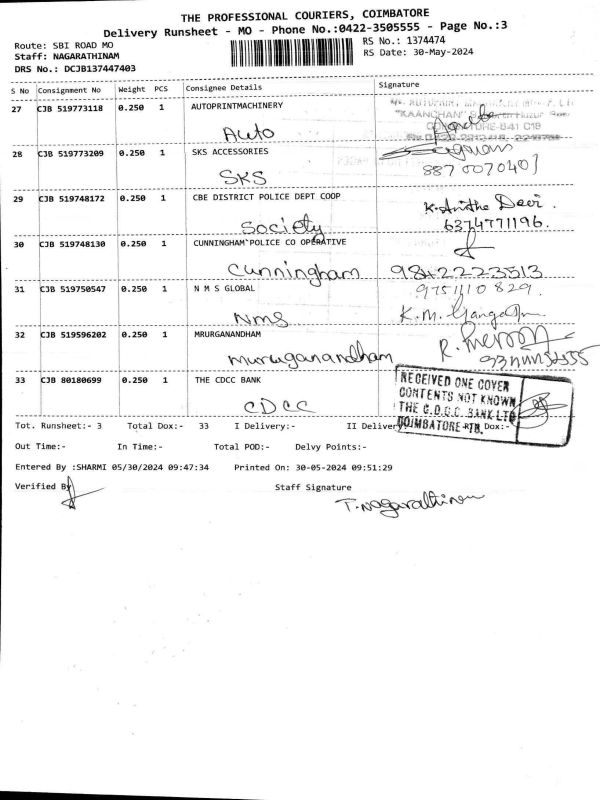 THE PROFESSIONAL COURIERS, COIMBATORE
Delivery Runsheet - MO - Phone No.:0422-3505555 - Page No.:3
Route: SBI ROAD MO
RS No.: 1374474
Staff: NAGARATHINAM
RS Date: 30-May-2024
DRS No.: DCJB137447403
S No Consignment No Weight PCS Consignee Details Signature
27 CJB 519773118 0.250 1 AUTOPRINTMACHINERY
"KAANCHAN"
Auto
28 CJB 519773209 0.250 1 SKS ACCESSORIES
SKS 8870070401
29 CJB 519748172 0.250 1 CBE DISTRICT POLICE DEPT COOP
K. Anitha Devi.
Society 6374771196.
30 CJB 519748130 0.250 1 CUNNINGHAM`POLICE CO OPERATIVE
Cunningham 9842223513
31 CJB 519750547 0.250 1 N M S GLOBAL 9751110829.
Nms K.M.
32 CJB 519596202 0.250 1 MRURGANANDHAM
Muruganandham R.
33 CJB 80180699 0.250 1 THE CDCC BANK
CDCC
RECEIVED ONE COVER
CONTENTS NOT KNOWN
THE C.D.C.C. BANK LTD
COIMBATORE-RTD.
Tot. Runsheet:- 3 Total Dox:- 33 I Delivery:- II Delivery Dox:-
Out Time:- In Time:- Total POD:- Delvy Points:-
Entered By :SHARMI 05/30/2024 09:47:34 Printed On: 30-05-2024 09:51:29
Verified By Staff Signature
T. Nagarathinam